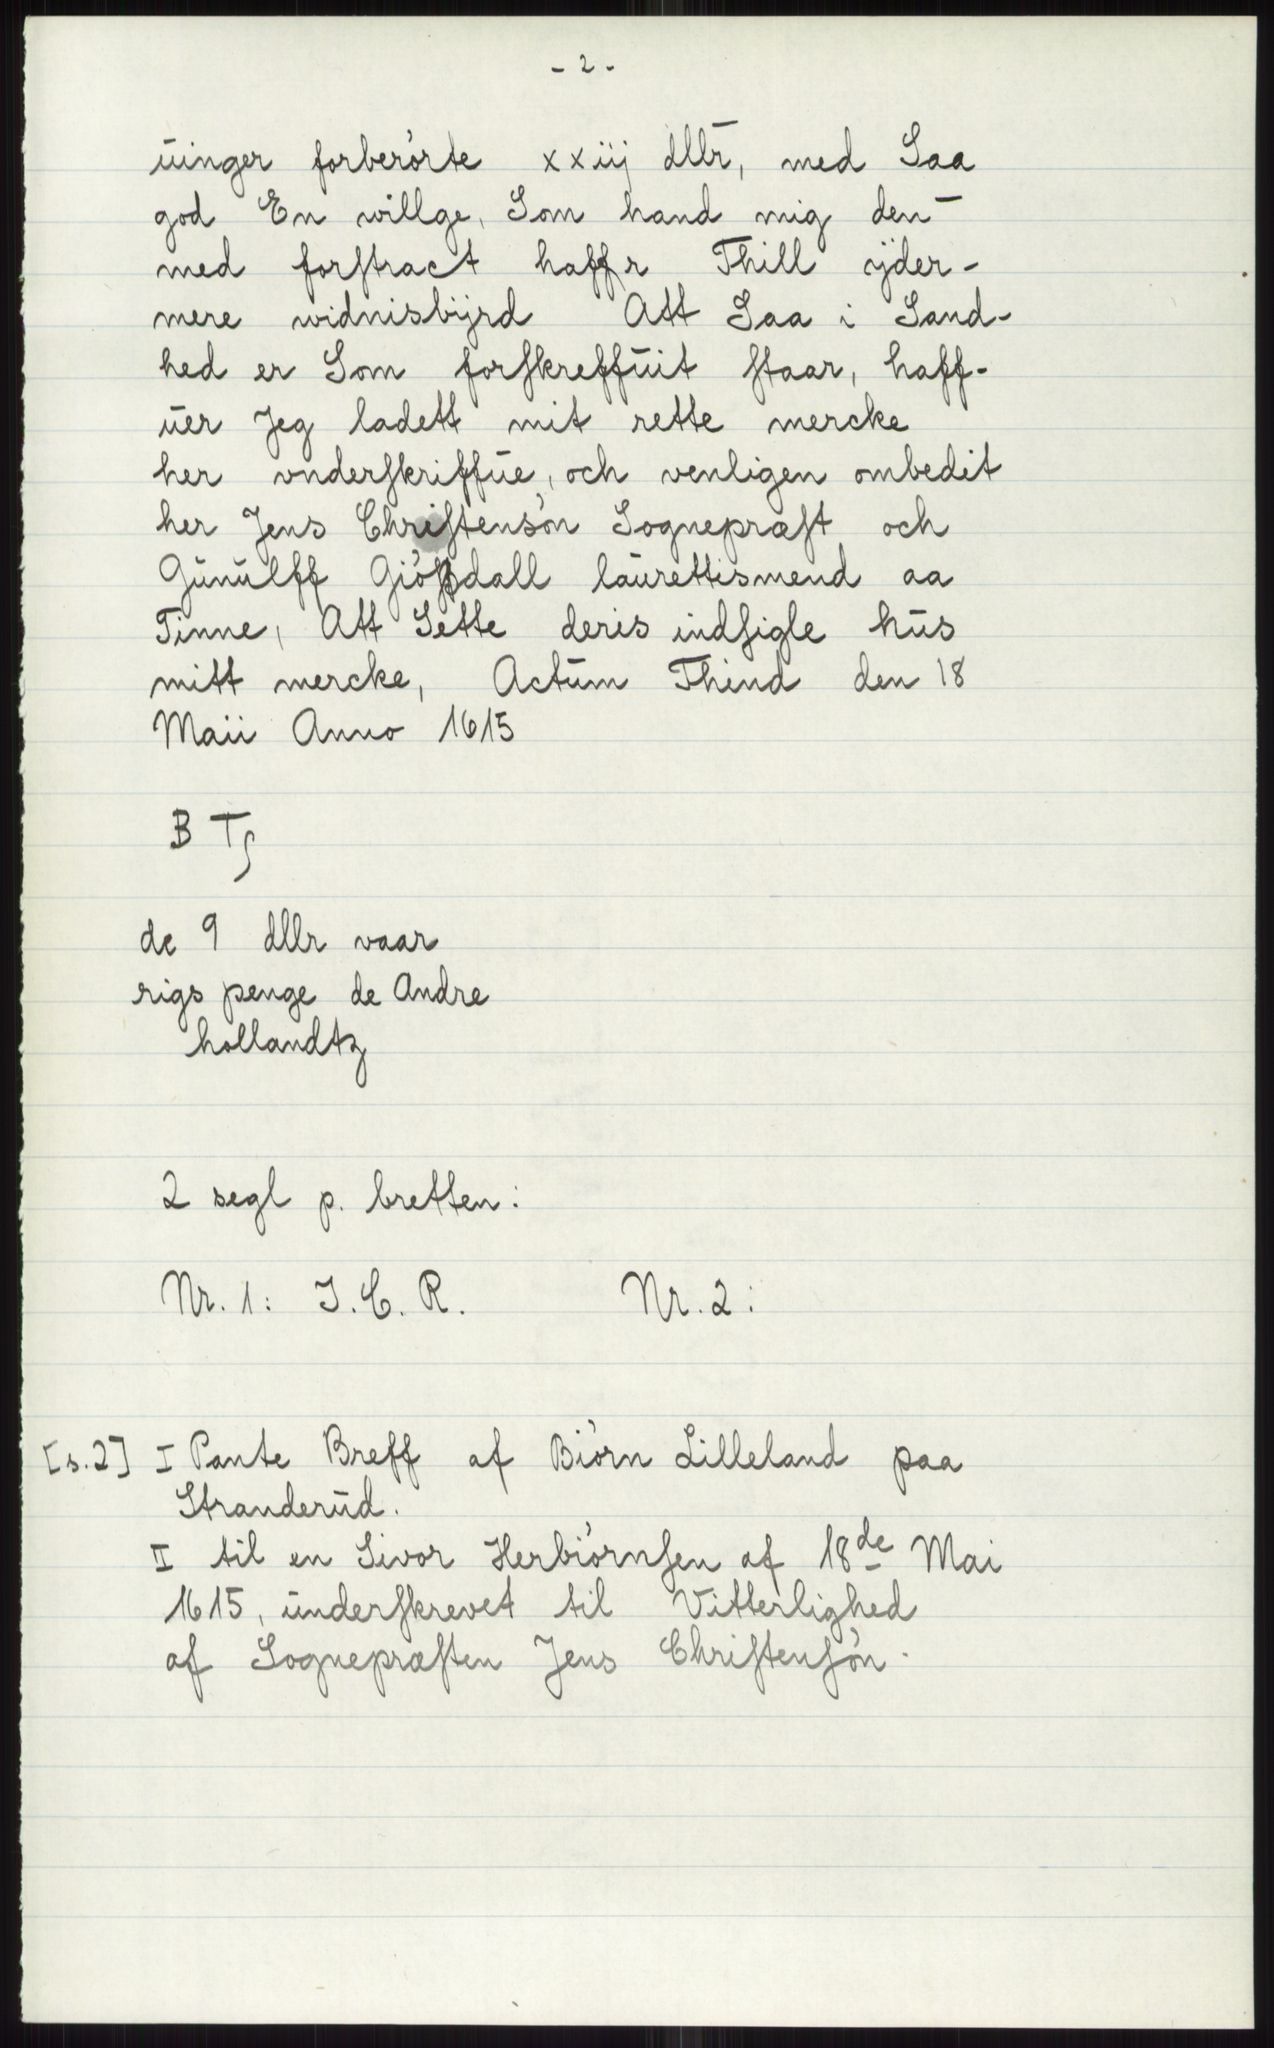 - 2 -
ŭinger forberórte xxiij dllr̄, med Saa
god En willge, Som hand mig den̄
med forſtract haffr Thill ÿder-
mere widnisbÿrd Att Saa i Sand-
hed er Som forſkreffŭit ſtaar, haff-
ŭer Jeg ladett mit rette mercke
her vnderſkriffŭe, och venligen ombedit
her Jens Chriſtensón Sognepræſt och
Gŭnŭlff Gióſdall laŭrettismend aa
Tinne, Att Sette deris indſigle hŭs
mitt mercke, Actŭm Thind den 18
Maii Anno 1615
B T
de 9 dllr vaar
rigs penge de Andre
hollandtz
2 segl p. bretten:
Nr. 1: J.C.R. Nr. 2:
[s.2] I Pante Breff af Biórn Lilleland paa
Stranderŭd.
II til en Sivor Herbiórnſen af 18de Mai
1615, ŭnderſkrevet til Vitterlighed
af Sognepræſten Jens Chriſtenſón.